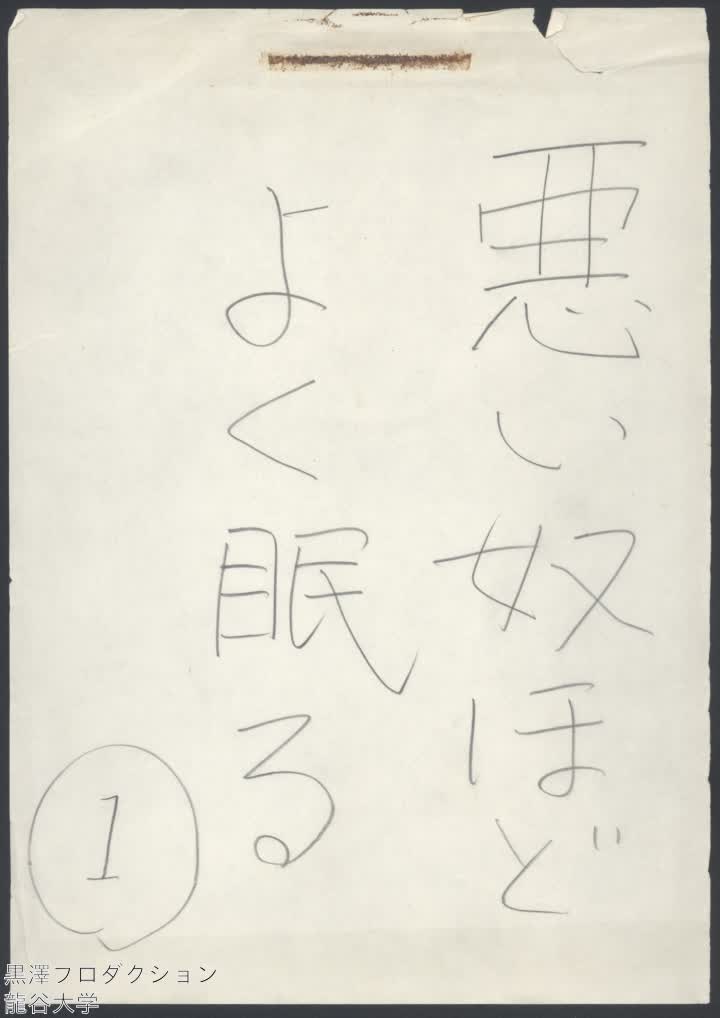 悪い奴ほど
よく眠る
1
黒澤フロダクション
龍谷大学